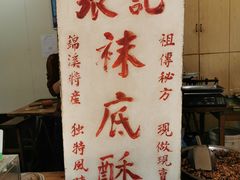 張記
袜底酥
祖傳秘方 現做現賣
錦溪特産 独特風